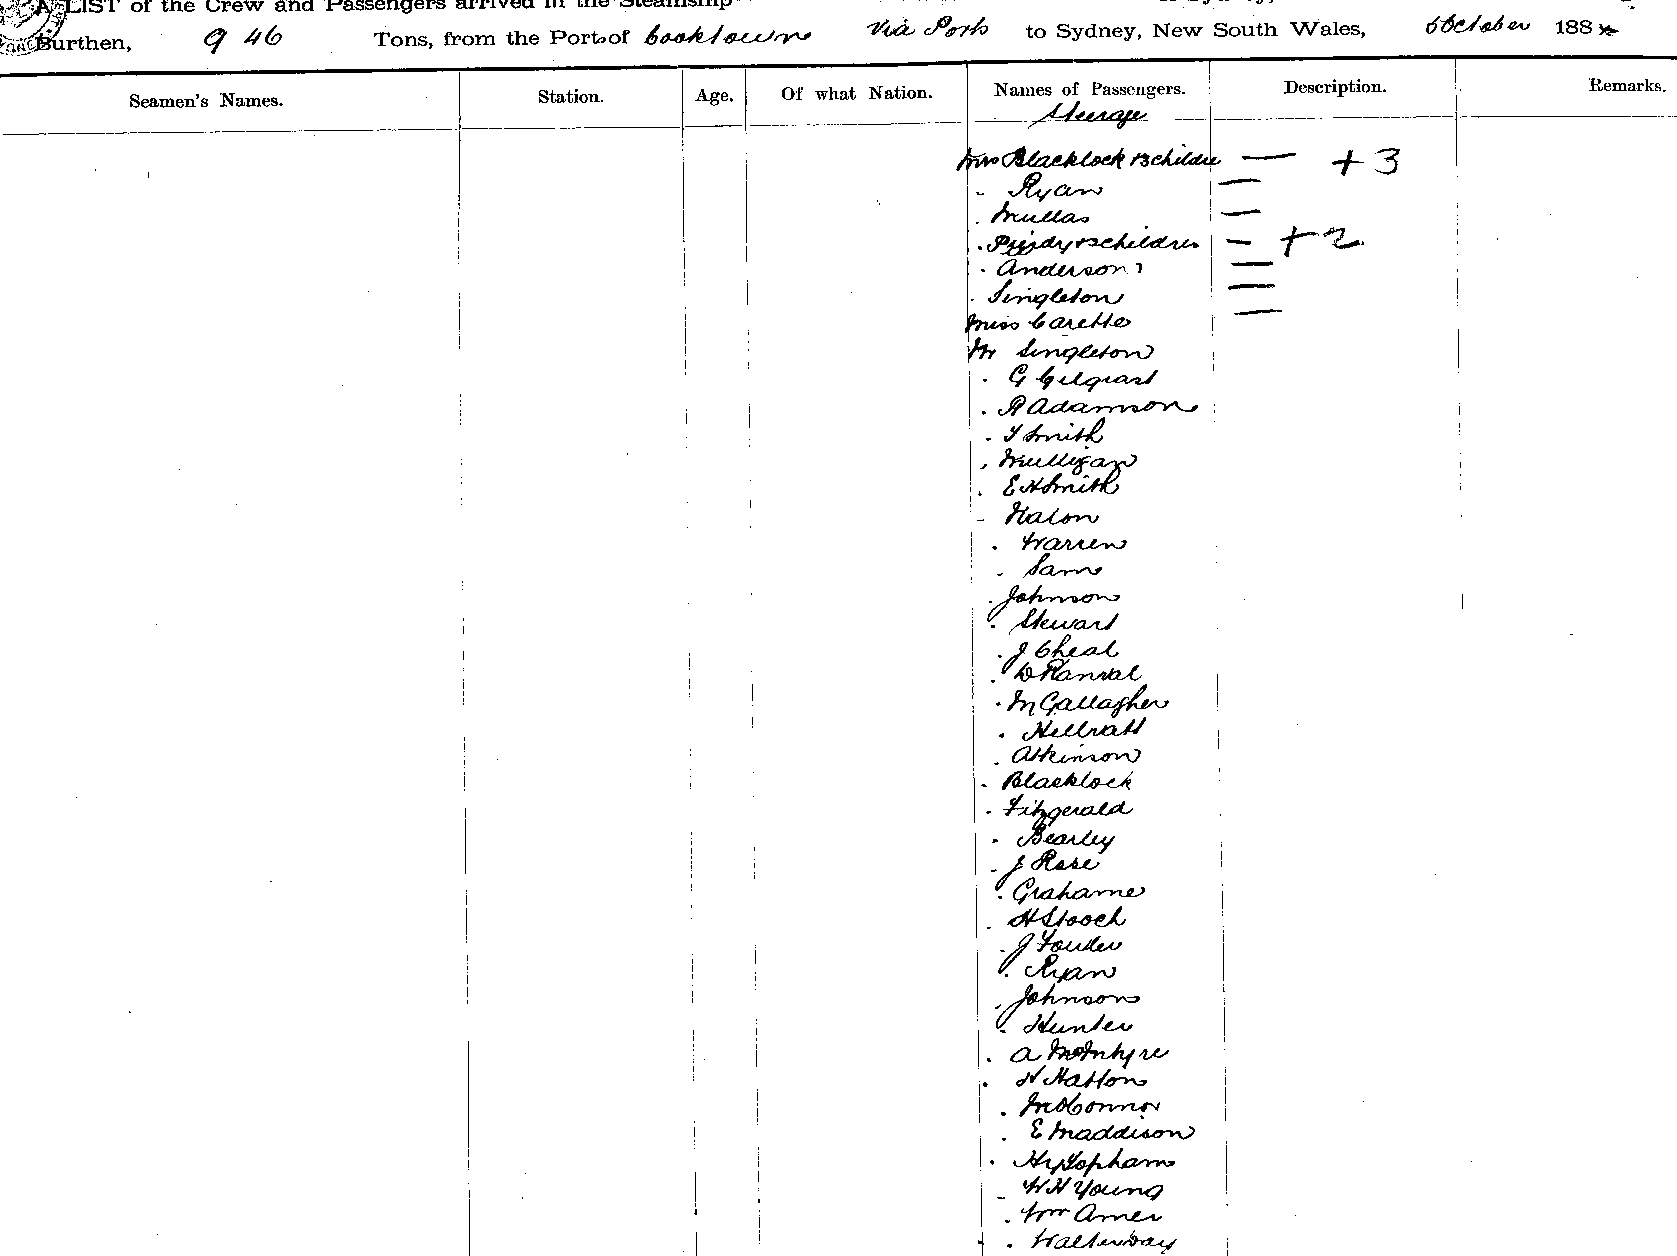 A LIST of the Crew and Passengers arrived in the Steamship
Burthen, 946 Tons, from the Port of Cooktown Via Ports to Sydney, New South Wales, October 188
Seamen's Names. Station. Age. Of what Nation. Names of Passengers. Description. Remarks.
Steerage
Mrs Blacklock & 3 children — + 3
- Ryan —
. —
. Purdy & 2 children — + 2
. Anderson —
. Singleton —
Miss —
Mr Singleton
. G
. R Adamson
. T Smith
. Mulligan
. E H Smith
- 
. Warren
. Sam
. Johnson
. Stewart
. J Cheal
. D
. M Gallagher
. 
. Atkinson
. Blacklock
. Fitzgerald
. Bearley
. J Rose
. Grahame
. H Stooch
. J
. Ryan
. Johnson
. Hunter
. A McIntyre
. H Hatton
. 
. E Maddison
. Hy Topham
- W H Young
. Wm Amer
. Walter Day